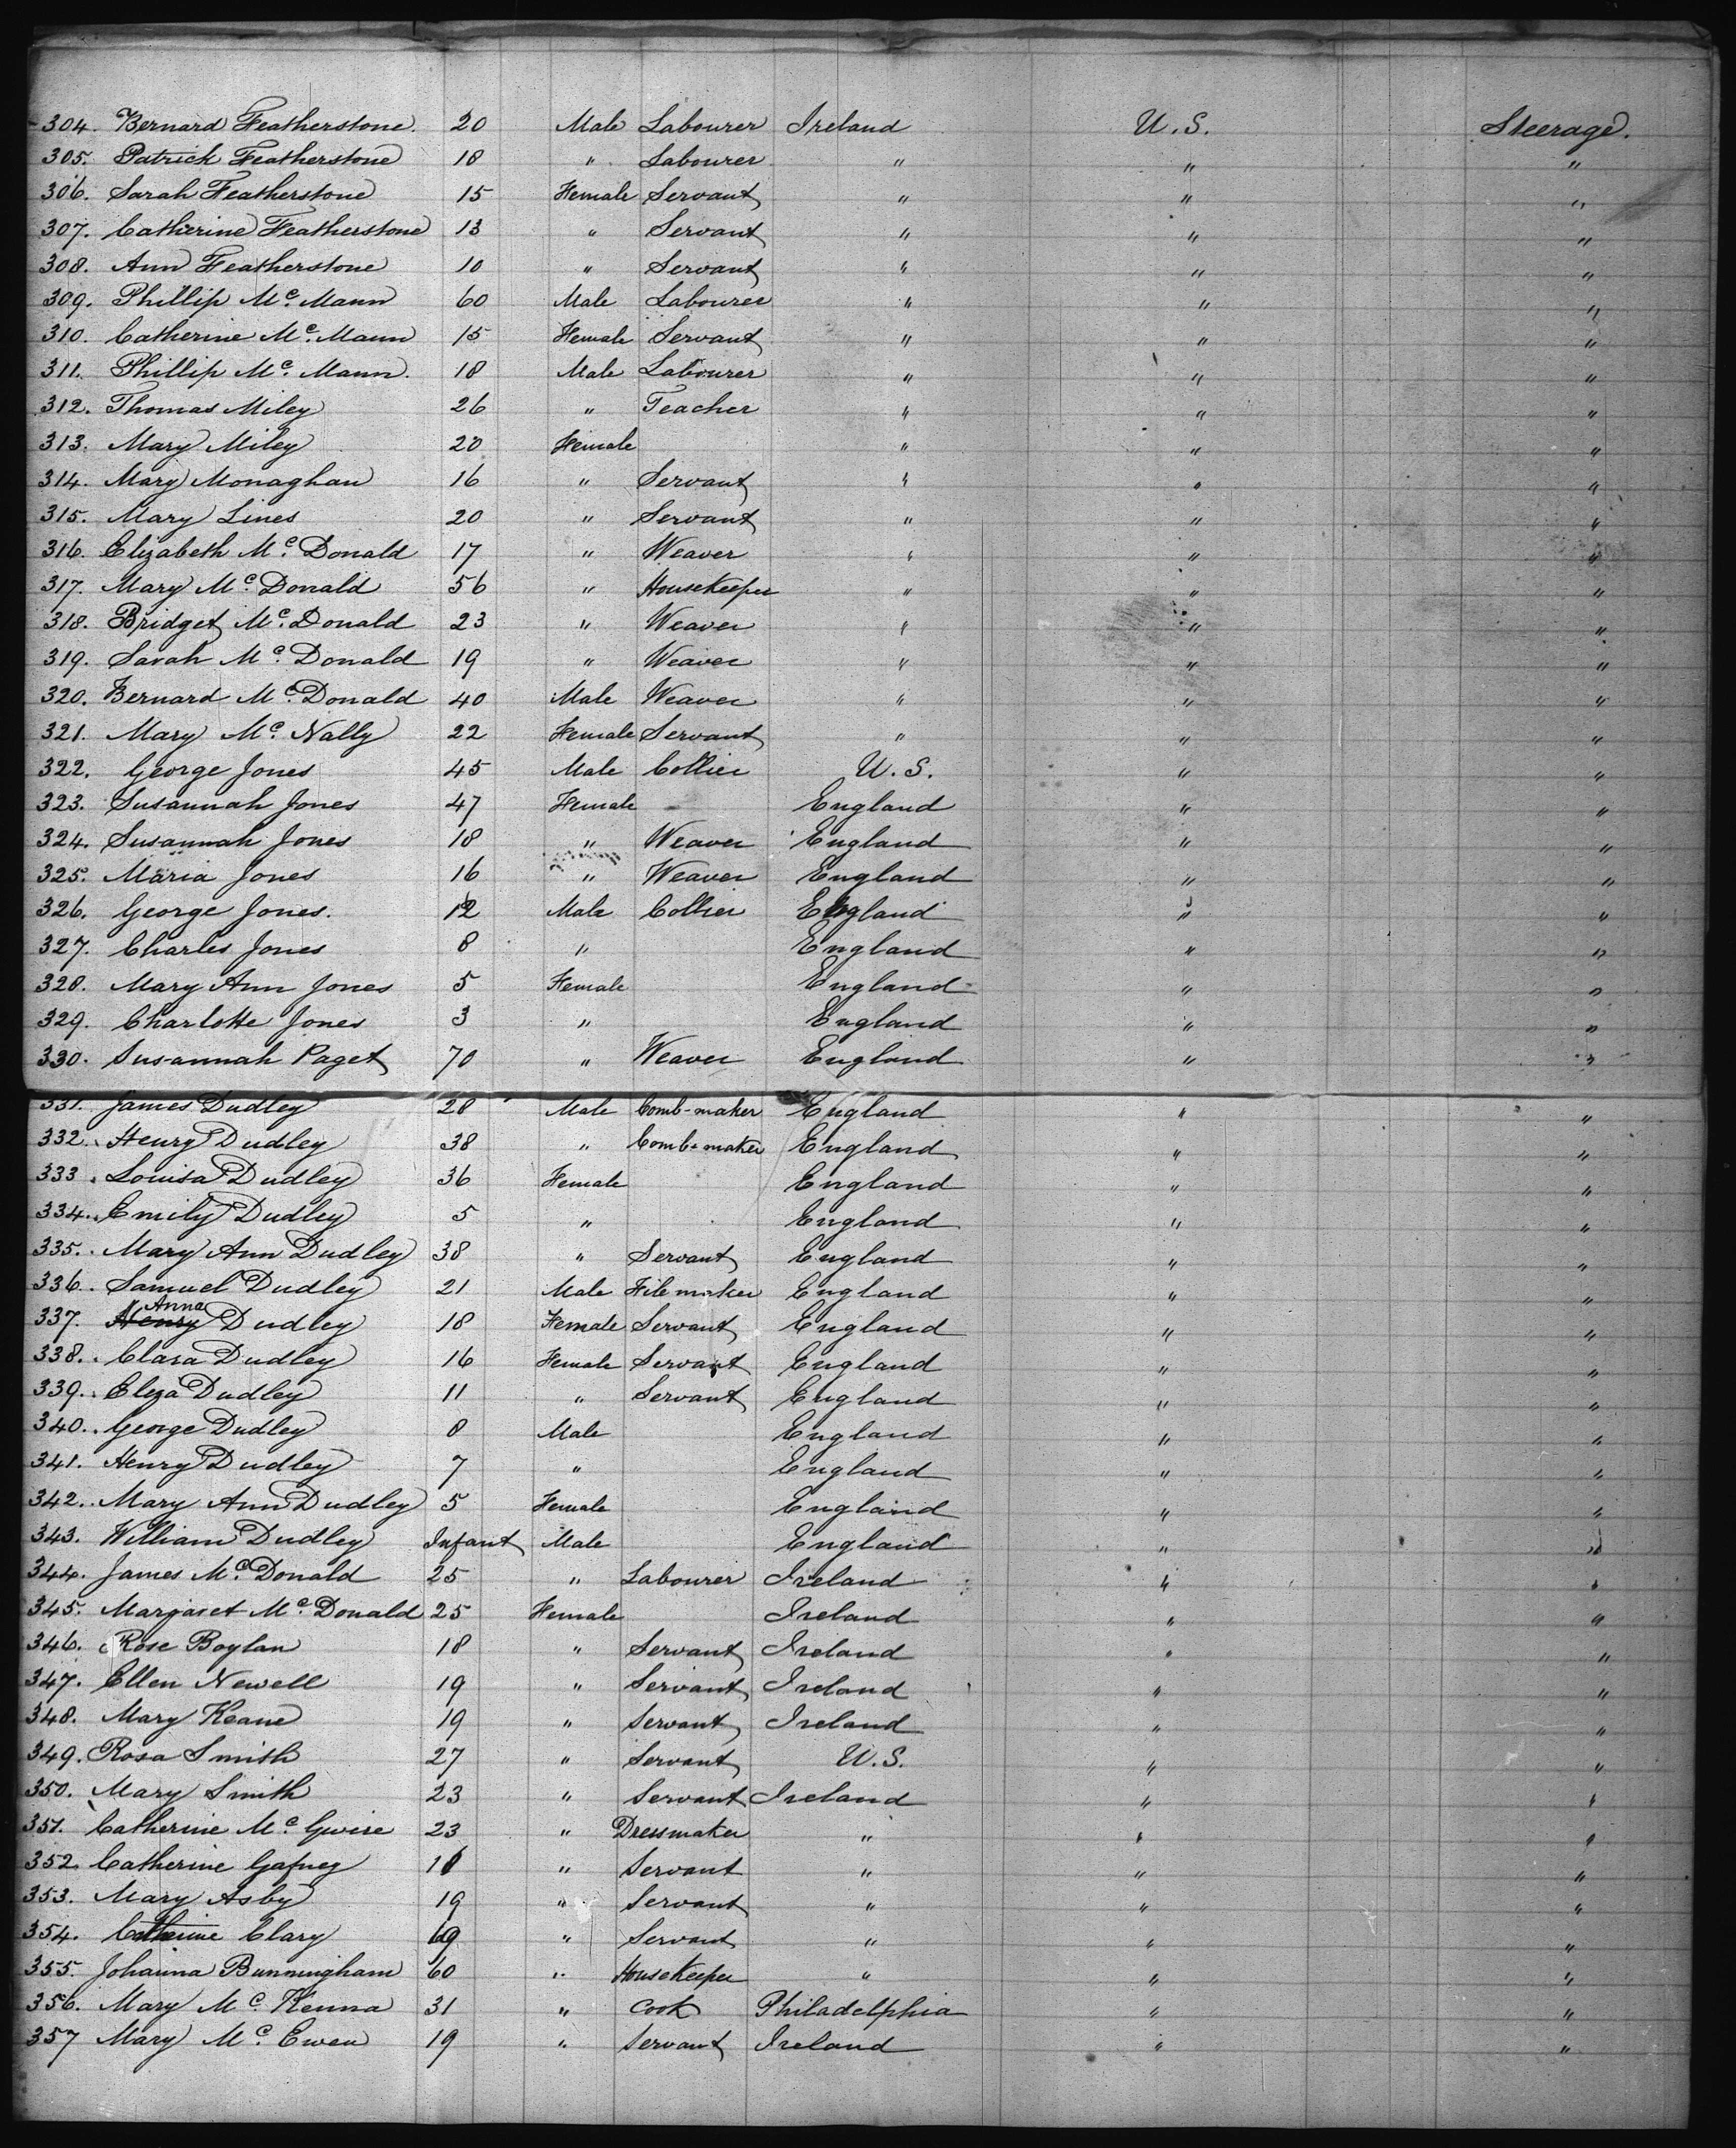 304. Bernard Featherstone. 20 Male Labourer Ireland U.S. Steerage.
305. Patrick Featherstone 18 " Labourer " " "
306. Sarah Featherstone 15 Female Servant " " "
307. Catherine Featherstone 13 " Servant " " "
308. Ann Featherstone 10 " Servant " " "
309. Phillip Mc. Mann 60 Male Labourer " " "
310. Catherine Mc. Mann 15 Female Servant " " "
311. Phillip Mc. Mann. 18 Male Labourer " " "
312. Thomas Miley 26 " Teacher " " "
313. Mary Miley 20 Female " " "
314. Mary Monaghan 16 " Servant " " "
315. Mary Lines 20 " Servant " " "
316. Elizabeth Mc. Donald 17 " Weaver " " "
317. Mary Mc. Donald 56 " HouseKeeper " " "
318. Bridget Mc. Donald 23 " Weaver " " "
319. Sarah Mc. Donald 19 " Weaver " " "
320. Bernard Mc. Donald 40 Male Weaver " " "
321. Mary Mc. Nally 22 Female Servant " " "
322. George Jones 45 Male Collier U.S. " "
323. Susannah Jones 47 Female England " "
324. Susannah Jones 18 " Weaver England " "
325. Maria Jones 16 " Weaver England " "
326. George Jones. 12 Male Collier England " "
327. Charles Jones 8 " England " "
328. Mary Ann Jones 5 Female England " "
329. Charlotte Jones 3 " England " "
330. Susannah Paget 70 " Weaver England " "
331. James Dudley 28 Male Comb-maker England " "
332. Henry Dudley 38 " Comb-maker England " "
333. Louisa Dudley 36 Female England " "
334. Emily Dudley 5 " England " "
335. Mary Ann Dudley 38 " Servant England " "
336. Samuel Dudley 21 Male File maker England " "
Anna
337. Henry Dudley 18 Female Servant England " "
338. Clara Dudley 16 Female Servant England " "
339. Eliza Dudley 11 " Servant England " "
340. George Dudley 8 Male England " "
341. Henry Dudley 7 " England " "
342. Mary Ann Dudley 5 Female England " "
343. William Dudley Infant Male England " "
344. James Mc. Donald 25 " Labourer Ireland " "
345. Margaret Mc. Donald 25 Female Ireland " "
346. Rose Boylan 18 " Servant Ireland " "
347. Ellen Newell 19 " Servant Ireland " "
348. Mary Keane 19 " Servant Ireland " "
349. Rosa Smith 27 " Servant U.S. " "
350. Mary Smith 23 " Servant Ireland " "
351. Catherine Mc. Gwire 23 " Dressmaker " " "
352. Catherine Gafney " Servant " " "
353. Mary Asby 19 " Servant " " "
354. Catherine Clary " Servant " " "
355. Johanna Bunningham 60 " HouseKeeper " " "
356. Mary Mc. Kenna 31 " Cook Philadelphia " "
357 Mary Mc. Ewen 19 " Servant Ireland " "